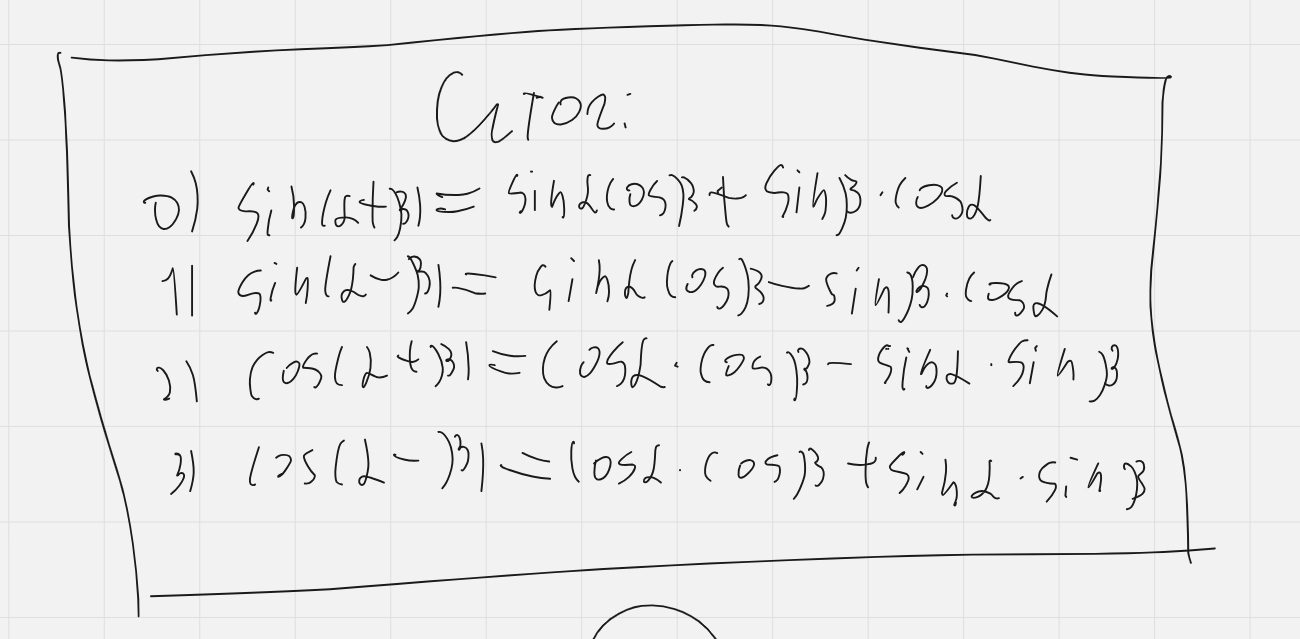 Итог:
0) sin(α+β) = sinαcosβ + sinβ·cosα
1) sin(α-β) = sinαcosβ - sinβ·cosα
2) cos(α+β) = cosα·cosβ - sinα·sinβ
3) cos(α-β) = cosα·cosβ + sinα·sinβ